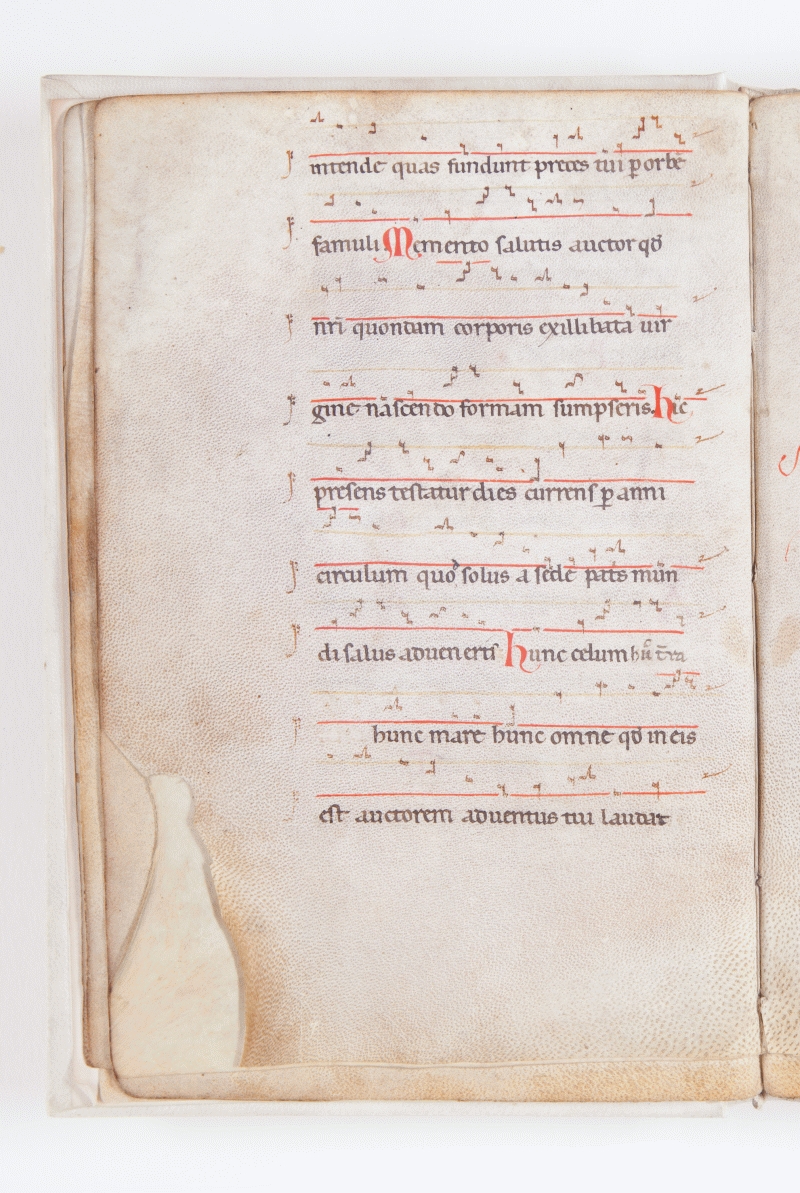 intende quas fundunt preces tui ꝑ orbē
famuli Memento salutis auctor qđ
nr̄i quondam corporis exillibata uir
gine nascendo formam sumpseris. hic
presens testatur dies currens ꝑ anni
circulum quo solus a sede patˢ mun
di salus adueneris hunc celum hū t̄ra
hunc mare hunc omne qđ in eis
est auctorem aduentus tui laudat